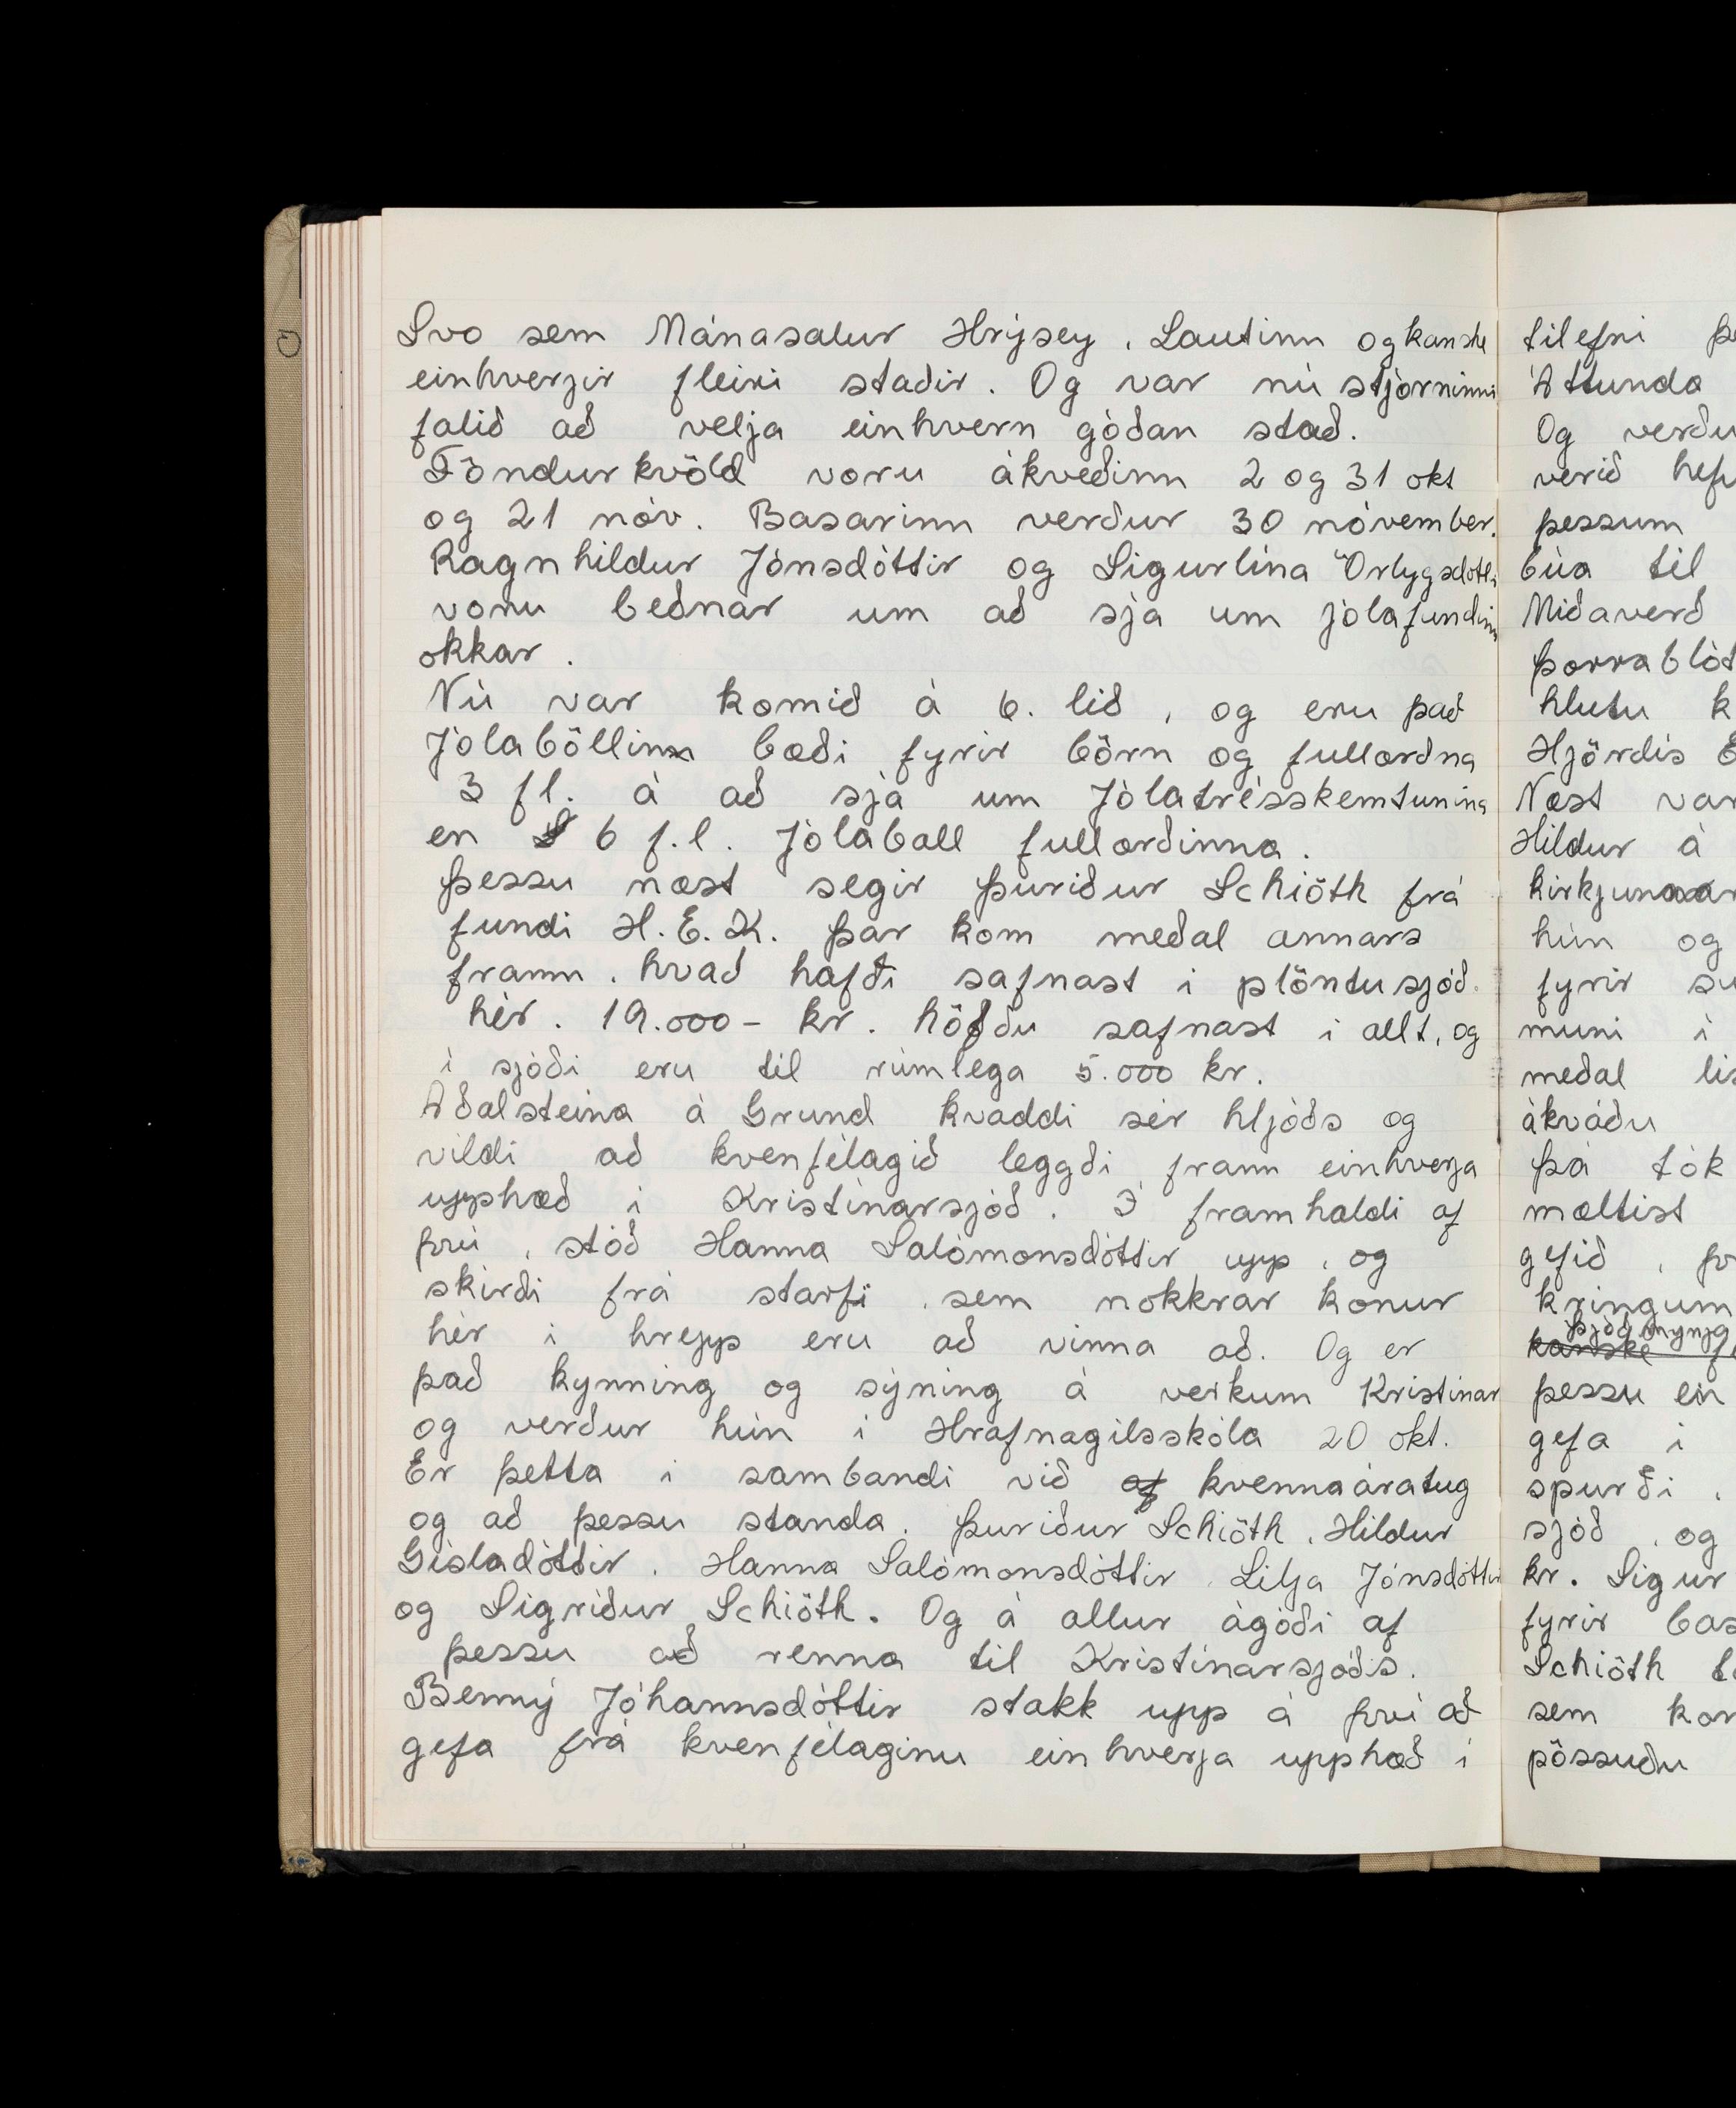 Svo sem Mánasalur Hrýsey, Lautinn og kanske
einhverjir fleiri staðir. Og var nú stjórninni
falið að velja einhvern góðan stað.
Föndurkvöld voru ákveðinn 2 og 31 okt
og 21 nóv. Basarinn verður 30 nóvember.
Ragnhildur Jónsdóttir og Sigurlína Örlygsdóttir
voru beðnar um að sjá um jólafundinn
okkar.
Nú var komið á 6. lið, og eru það
Jólaböllinn bæði fyrir börn og fullorðna
3 fl. á að sjá um Jólatrésskemtunina
en 6 f.l. Jólaball fullorðinna.
þessu næst segir þuriður Schiöth frá
fundi H.E.K. þar kom meðal annars
framm, hvað hafði safnast i plöntusjóð.
hér. 19.000- kr. höfðu safnast i allt, og
i sjóði eru til rúmlega 5.000 kr.
Aðalsteina á Grund kvaddi sér hljóðs og
vildi að kvenfélagið leggði framm einhverja
upphæð i Kristínarsjóð. Í framhaldi af
þvi, stóð Hanna Salómonsdóttir upp, og
skirði frá starfi, sem nokkrar konur
hér i hrepp eru að vinna að. Og er
það kynning og sýning á verkum Kristinar
og verður hún i Hrafnagilsskóla 20 okt.
Er þetta i sambandi við af kvennaáratug
og að þessu standa. þuriður Schiöth, Hildur
Gísladóttir, Hanna Salómonsdóttir, Lilja Jónsdóttir
og Sigriður Schiöth. Og á allur ágóði af
þessu að renna til Kristínarsjóðis.
Benný Jóhannsdóttir stakk upp á þvi að
gefa frá kvenfélaginu einhverja upphæð i
tilefni
Áttunda
Og
verið
þessum
búa til
Miðaverð
þorrablót
hlutu
Hjördis
Næst var
Hildur á
hún og
fyrir
muni i
meðal
ákváðu
þá tók
mæltist
gefið,
kringum
kanske
þessu
gefa i
spurði,
sjóð, og
kr. Sigur
fyrir bas
Schiöth
sem
pössuðu